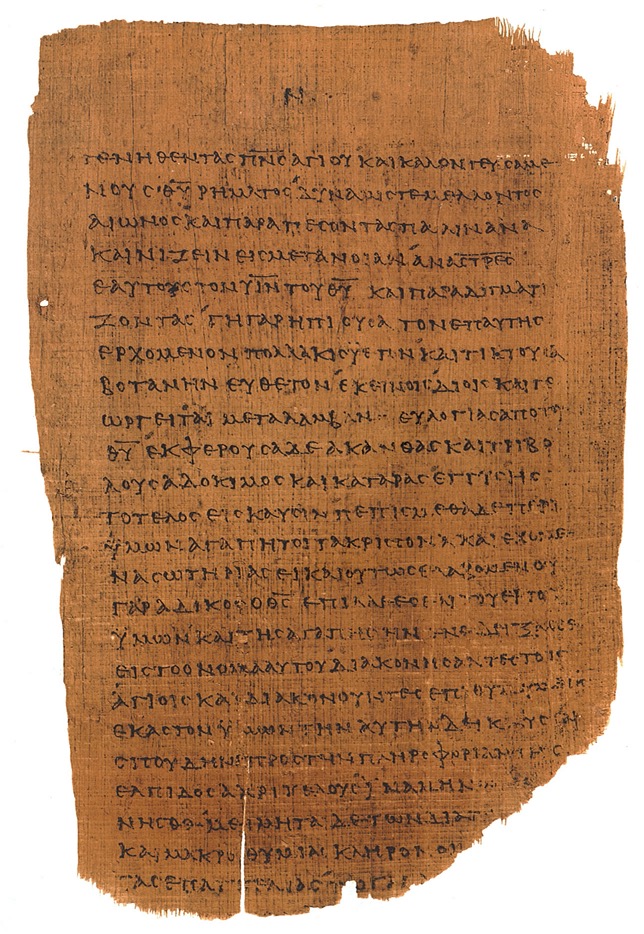 Ν
ΓΕΝΗΘΕΝΤΑΣ Π̅Ν̅Σ̅ ΑΓΙΟΥ ΚΑΙ ΚΑΛΟΝ ΓΕΥΣΑΜΕ
ΝΟΥΣ Θ̅Υ̅ ΡΗΜΑ ΔΥΝΑΜΙΣ ΤΕ ΜΕΛΛΟΝΤΟΣ
ΑΙΩΝΟΣ ΚΑΙ ΠΑΡΑΠΕΣΟΝΤΑΣ ΠΑΛΙΝ ΑΝΑ
ΚΑΙΝΙΖΕΙΝ ΕΙΣ ΜΕΤΑΝΟΙΑΝ
ΕΑΥΤΟΙΣ ΤΟΝ Υ̅Ι̅Ν̅ ΤΟΥ Θ̅Υ̅ ΚΑΙ ΠΑΡΑΔΙΓΜΑΤΙ
ΖΟΝΤΑΣ ΓΗ ΓΑΡ Η ΠΙΟΥΣΑ ΤΟΝ ΕΠ ΑΥΤΗΣ
ΕΡΧΟΜΕΝΟΝ ΠΟΛΛΑΚΙΣ ΥΕΤΟΝ ΚΑΙ ΤΙΚΤΟΥΣΑ
ΒΟΤΑΝΗΝ ΕΥΘΕΤΟΝ ΕΚΕΙΝΟΙΣ ΔΙ ΟΙΣ ΚΑΙ ΓΕ
ΩΡΓΕΙΤΑΙ ΜΕΤΑΛΑΜΒΑΝΕΙ ΕΥΛΟΓΙΑΣ ΑΠΟ ΤΟΥ
Θ̅Υ̅ ΕΚΦΕΡΟΥΣΑ ΔΕ ΑΚΑΝΘΑΣ ΚΑΙ ΤΡΙΒΟ
ΛΟΥΣ ΑΔΟΚΙΜΟΣ ΚΑΙ ΚΑΤΑΡΑΣ ΕΓΓΥΣ ΗΣ
ΤΟ ΤΕΛΟΣ ΕΙΣ ΚΑΥΣΙΝ ΠΕΠΙΣΜΕΘΑ ΔΕ ΠΕΡΙ
ΥΜΩΝ ΑΓΑΠΗΤΟΙ ΤΑ ΚΡΙΣΤΟΝΑ ΚΑΙ ΕΧΟΜΕ
ΝΑ ΣΩΤΗΡΙΑΣ ΕΙ ΚΑΙ ΟΥΤΩΣ ΕΛΑΛΟΥΜΕΝ ΟΥ
ΓΑΡ ΑΔΙΚΟΣ Ο Θ̅Σ̅ ΕΠΙΛΑΘΕΣΘΑΙ ΤΟΥ ΕΡΓΟΥ
ΥΜΩΝ ΚΑΙ ΤΗΣ ΑΓΑΠΗΣ ΗΝ ΕΝΕΔΕΙΞΑΣΘΕ
ΕΙΣ ΤΟ ΟΝΟΜΑ ΑΥΤΟΥ ΔΙΑΚΟΝΗΣΑΝΤΕΣ ΤΟΙΣ
ΑΓΙΟΙΣ ΚΑΙ ΔΙΑΚΟΝΟΥΝΤΕΣ ΕΠΙΘΥΜΟΥΜΕΝ
ΕΚΑΣΤΟΝ ΥΜΩΝ ΤΗΝ ΑΥΤΗΝ
ΣΠΟΥΔΗΝ ΠΡΟΣ ΤΗΝ ΠΛΗΡΟΦΟΡΙΑΝ ΤΗΣ
ΕΛΠΙΔΟΣ ΑΧΡΙ ΤΕΛΟΥΣ ΙΝΑ ΜΗ
ΝΗΣΘΕ ΜΕΙΜΗΤΑΙ ΔΕ ΤΩΝ ΔΙΑ
ΚΑΙ ΜΑΚΡΟΘΥΜΙΑΣ ΚΛΗΡΟΝΟ
ΤΑΣ ΕΠΑΓΓΕΛΙΑΣ ΤΩ ΓΑΡ